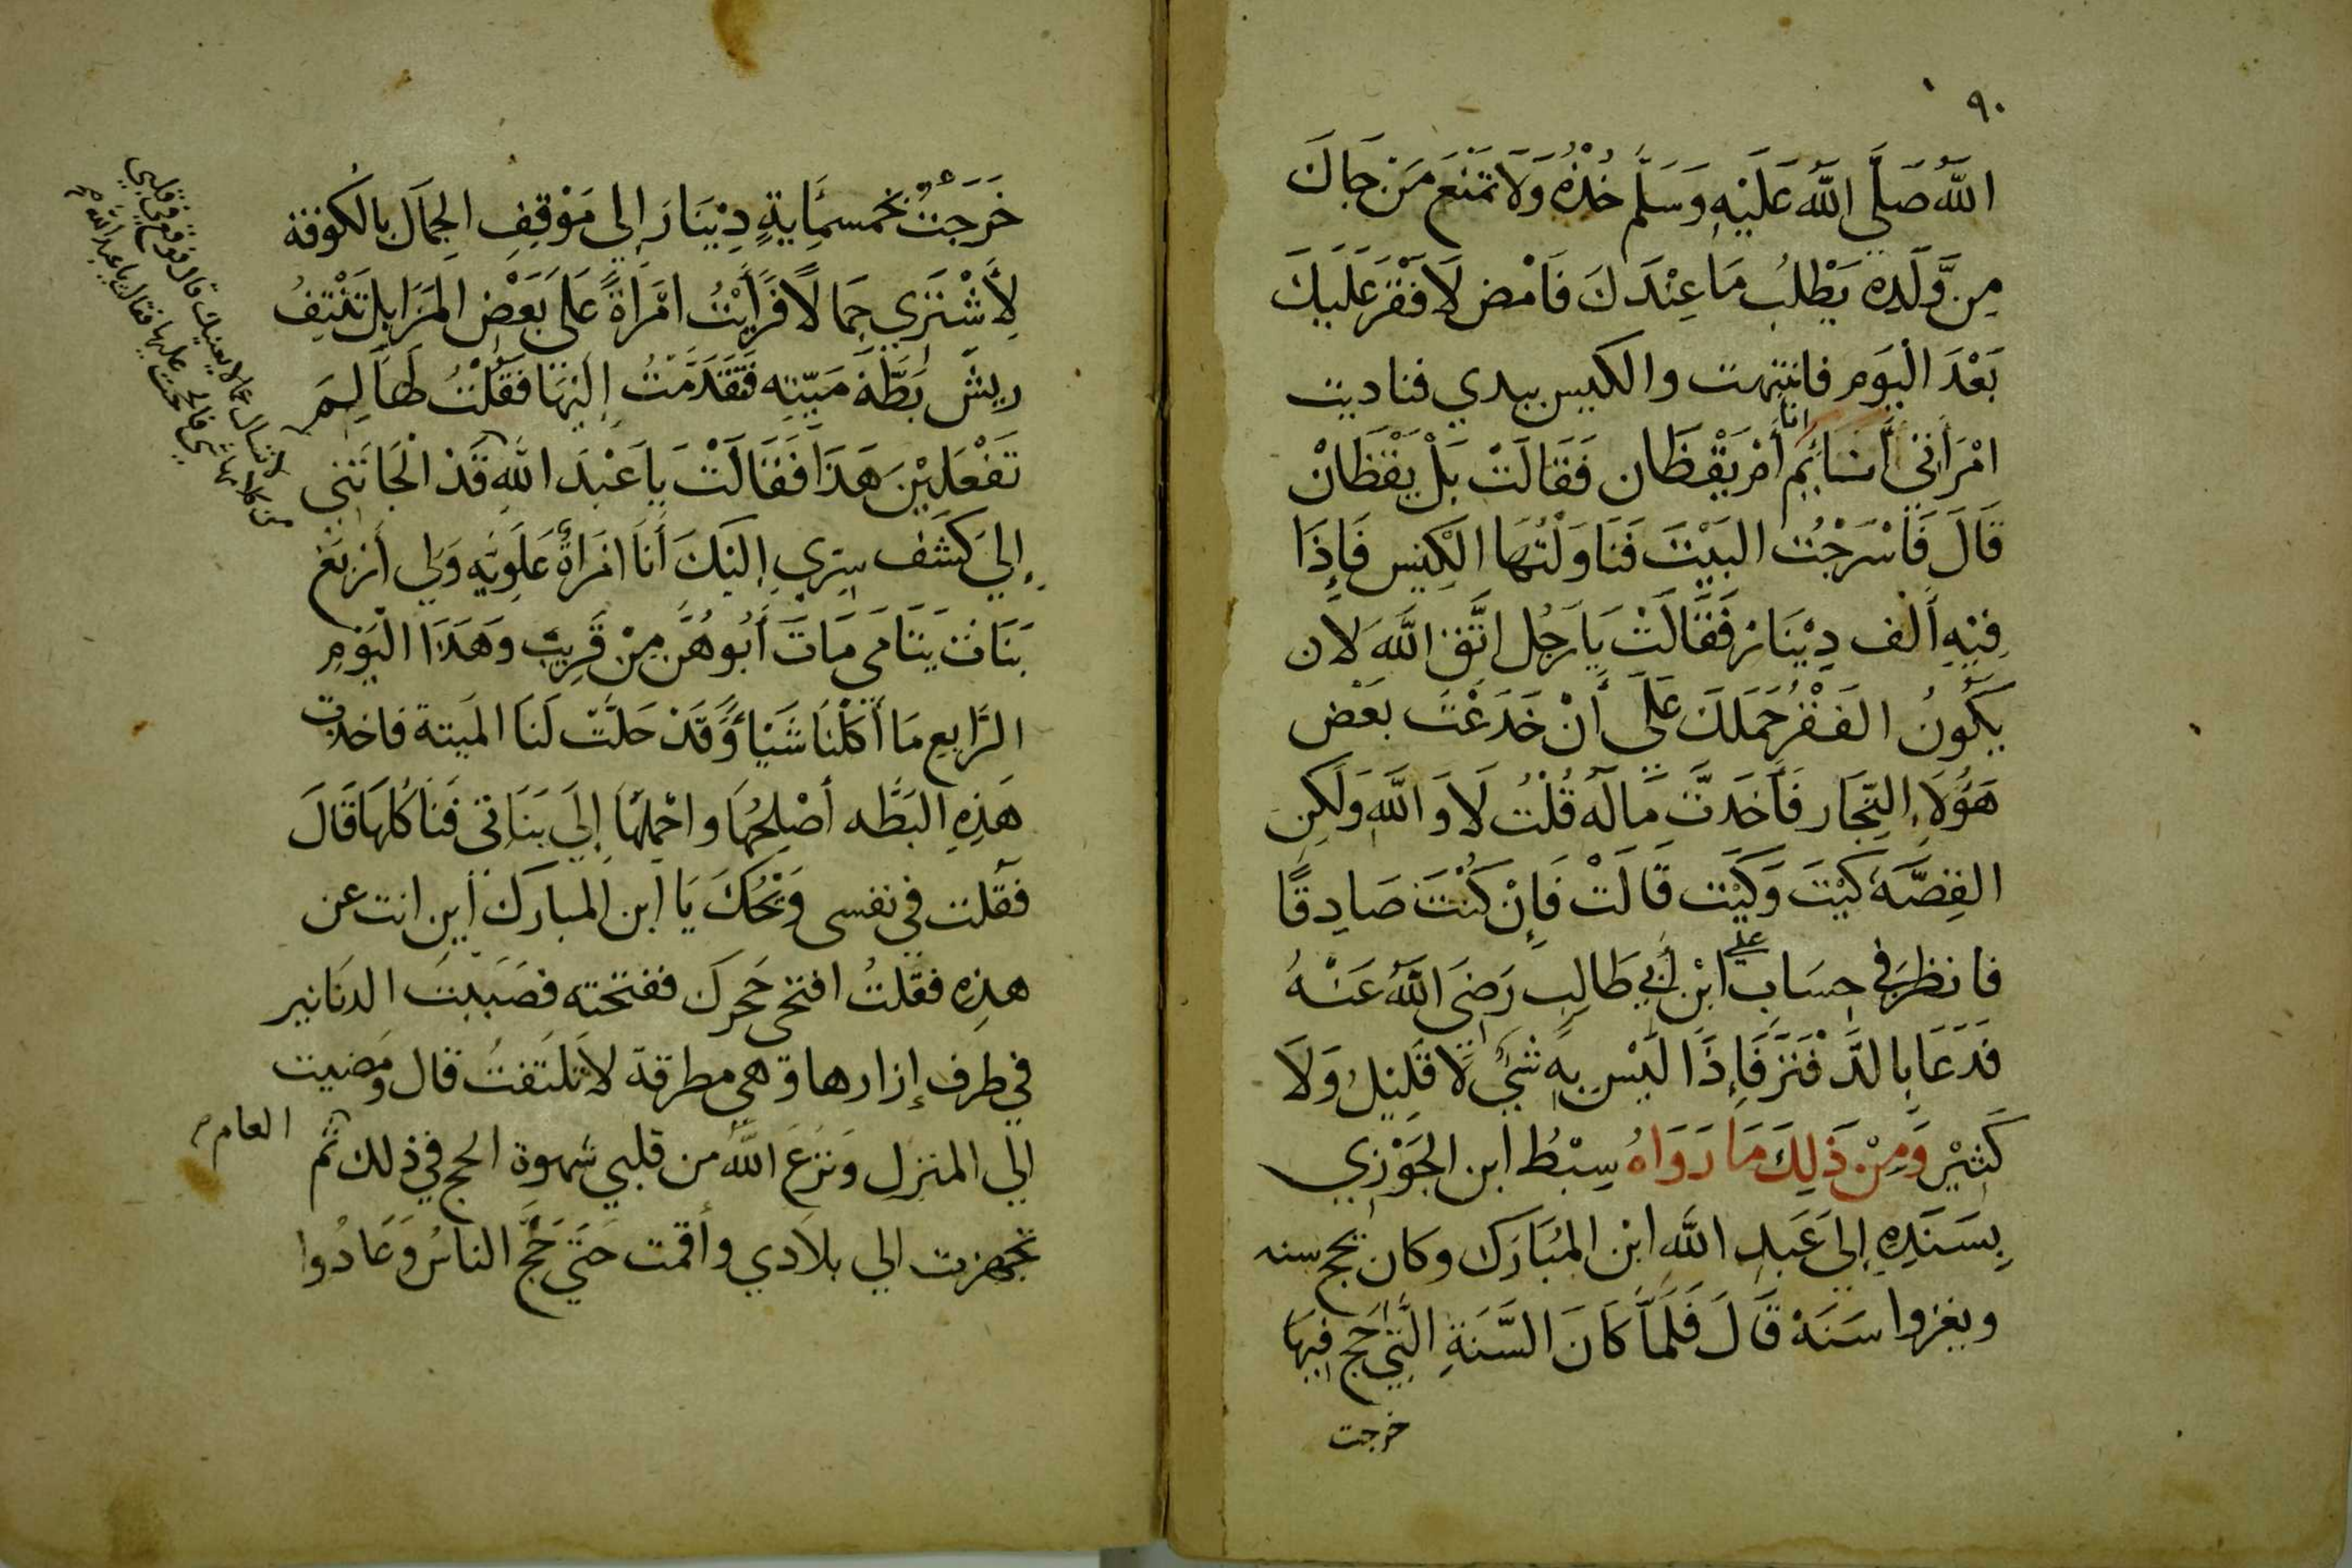 ٩٠
اللَّهُ صَلَّي اللَّهُ عَلَيْهِ وَسَلَّم خُذْهُ وَلَا تَمْنَع مَنْ جَاكَ
مِن وَّلَدِه يَطْلُب مَا عِنْدَكَ فَامْض لَا فَقْرَ عَلَيكَ
بَعْدَ الْيَوْم فانتبهت والكيس بيدي فناديت
امْرَأتي أنايم انا أمْ يَقْظَان فَقَالَتْ بَلْ يَقْظَانْ
قَالَ فَأسْرَجْتُ البَيْتَ فَنَاوَلْتُهَا الكِيس فَإِذَا
فِيْهِ أَلْف دِيْنَار فَقَالَتْ يَا رَجُل اتَّق اللَّهَ لَا ان
يَكُونُ الفَقْرُ حَمَلَكَ عَلَي أنْ خَدَعْتَ بَعْض
هَؤُلَاءِ التِّجَار فَأَخَذتَّ مَالَه قُلْتُ لَا وَاللَّهِ وَلَكِن
القِصَّة كَيْتَ وَكَيْت قَالَتْ فَإِنْ كُنْتَ صَادِقًا
فانظر في حِسَاب علي ابْن أَبِي طَالِب رَضِيَ اللَّهُ عَنْهُ
فَدَعَا بِالدَّفْتَر فَإِذَا لَيْس بِهِ شَيْ لَا قَلِيْل وَلَا
كَثِيْر وَمِنْ ذَلِكَ مَا رَوَاهُ سِبْطُ ابن الجَوْزِي
بِسَنَدِهِ إِلَي عَبدِ اللَّهِ ابْن المُبَارَك وكان يحج سنه
ويغزوا سَنَهْ قَالَ فَلَمَّا كَانَ السَّنَةِ الَّتِي حَجّ فِيهَا
خرجت
خَرَجْتُ بخمسمَائيةِ دِيْنَار إلي مَوْقِفِ الجِمَال بالكُوفة
لأَشْتَري جِمَالًا فَرَأَيْتُ امْرَأةً عَلَى بَعْض المَزَابل تَنْتِفُ
رِيشَ بَطَّة مَيِّتِه فَتَقَدَّمْتُ إلَيْهَا فَقُلْتُ لَهَا لِمَ
تَفْعَلِيْنَ هَذَا فَقَالَتْ يا عَبْدَ اللهِ قَدْ الْجَأتَنِي
إلي كَشْف سِرِّي إلَيْكَ أنَا امْرَأةٌ عَلَوِيَّه وَلِي أرْبَع
بَنَات يَتَامَى مَاتَ أَبُوهُنَّ مِنْ قَرِيب وهَذَا اليَوْم
الرَّابِع مَا أكَلْنَا شَيْأً وَقَدْ حَلَّتْ لَنَا المَيتة فاخذت
هَذِهِ البَطَّه أُصْلِحُهَا واحْمِلُهَا إِلَي بَنَاتِي فَنَأكُلهَا قَالَ
فقلت في نفسى وَيْحُكَ يَا ابن المبارك أين انت عن
هذِه فقلتُ افتحي حَجرك ففتحته فصَبَبتُ الدنَانير
في طرف إزارها وهي مطرقة لا تلتفتُ قال ومَضيت
الي المنزل ونَزَعَ اللَّهُ من قلبي شهوة الحج في ذلك العام ثم
تجهزت الي بلَادي وأقمت حَتَي حَجَّ الناسُ وَعَادُوا
لا تسال عما لا يعنيك قال فوقع في قلبي
من كلامها شي فالححت عليها فقالت يا عبد الله